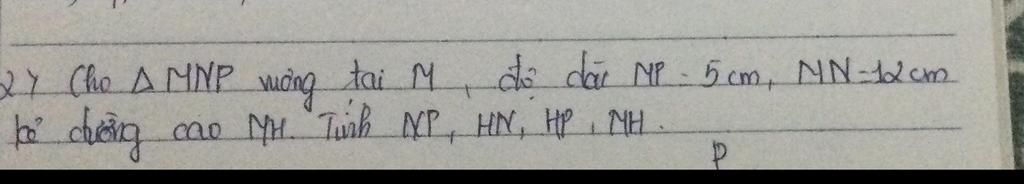 2) Cho Δ MNP vuông tại M, độ dài MP = 5 cm, MN = 12 cm
kẻ đường cao MH. Tính NP, HN, HP, MH.
P